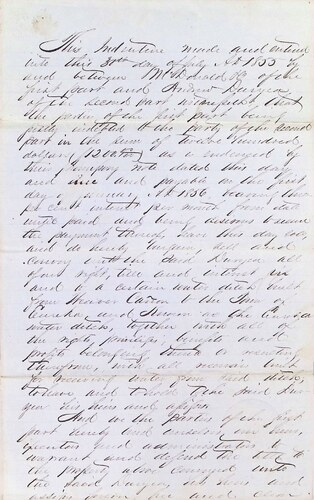 This Indenture made and entered
into this 30th day of July AD 1855 by
and between McDonald of the
first part and Andrew
of the second part witnesseth that
the parties of the first part being
justly indebted to the party of the second
part in the sum of twelve hundred
dollars as evidenced by
their promissory note dated this day
and and payable on the first
day of 1856 bearing three
per cent interest per month from date
until paid and being desirous to secure
the payment thereof, have this day
and do hereby bargain, sell and
convey unto the said all
our right, title and interest in
and to a certain water ditch
from Cañon to the of
Eureka and known as the
water ditch, together with all of
the rights, privileges, benefits and
profits belonging thereto or
therefrom, with all
for receiving water from said ditch,
to have and to hold to the said
his heirs and assigns
And we the parties of the first
part hereby bind ourselves our heirs,
executors and administrators to
warrant and defend the title to
the property above conveyed unto
the said his heirs and
assigns